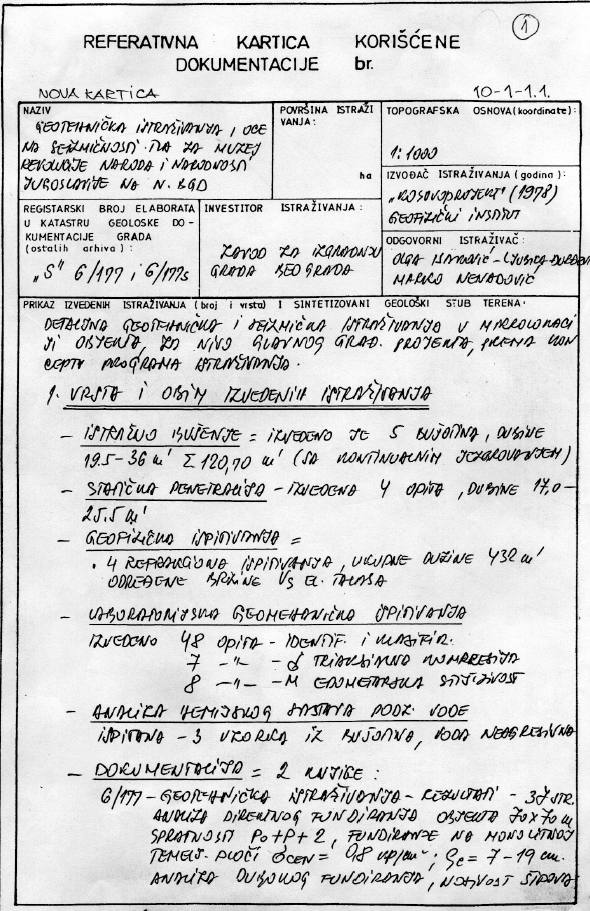 1
REFERATIVNA KARTICA KORIŠĆENE
DOKUMENTACIJE br.
NOVA KARTICA
10-1-1.1.
NAZIV
GEOTEHNIČKA ISTRAŽIVANJA, OCE
NA SEIZMIČNOSTI TLA ZA MUZEJ
REVOLUCIJE NARODA I NARODNOSTI
JUGOSLAVIJE NA N. BGD
POVRŠINA ISTRAŽI
VANJA:
ha
TOPOGRAFSKA OSNOVA (koordinate):
1:1000
IZVOĐAČ ISTRAŽIVANJA (godina):
„KOSOVOPROJEKT" (1978)
GEOFIZIČKI INSTITUT
REGISTARSKI BROJ ELABORATA
U KATASTRU GEOLOSKE DO-
KUMENTACIJE GRADA
(ostalih arhiva):
„S" 6/177 i 6/177s
INVESTITOR ISTRAŽIVANJA:
ZAVOD ZA IZGRADNJU
GRADA BEOGRADA
ODGOVORNI ISTRAŽIVAČ:
OLGA LJUBICA
MARKO NENADOVIĆ
PRIKAZ IZVEDENIH ISTRAŽIVANJA (broj i vrsta) I SINTETIZOVANI GEOLOŠKI STUB TERENA:
DETALJNA GEOTEHNIČKA I SEIZMIČKA ISTRAŽIVANJA U MIKROLOKACI
JI OBJEKTA, ZA NIVO GLAVNOG GRAĐ. PROJEKTA, PREMA KON
CEPTU PROGRAMA ISTRAŽIVANJA.
1. VRSTA I OBIM IZVEDENIH ISTRAŽIVANJA
- ISTRAŽNO BUŠENJE = IZVEDENO JE 5 BUŠOTINA, DUBINE
19.5-36 m' Σ 120,70 m' (SA KONTINUALNIM JEZGROVANJEM)
- STATIČKA PENETRACIJA - IZVEDENA 4 OPITA, DUBINE 17,0-
25.5 m'
- GEOFIZIČKA ISPITIVANJA =
. 4 REFRAKCIONA ISPITIVANJA, UKUPNE DUŽINE 432 m'
ODREĐENE BRZINE Vs EL. TALASA
- LABORATORIJSKA GEOMEHANIČKA ISPITIVANJA
IZVEDENO 48 OPITA - IDENTIF. I KLASIFIK.
7 -"- - TRIAKSIALNA KOMPRESIJA
8 -"- - M EDOMETARSKA STIŠLJIVOST
- ANALIZA HEMIJSKOG SASTAVA PODZ. VODE
ISPITANA - 3 UZORKA IZ BUŠOTINA, VODA NEAGRESIVNA
- DOKUMENTACIJA = 2 KNJIGE:
6/177 - GEOTEHNIČKA ISTRAŽIVANJA - REZULTATI - STR.
ANALIZA DIREKTNOG FUNDIRANJA OBJEKTA 70x70 m
SPRATNOSTI Po+P+2, FUNDIRANJE NA MONOLITNOJ
TEMELJ. PLOČI = 98 kp/cm²; = 7-19 cm.
ANALIZA DUBOKOG FUNDIRANJA, NOSIVOST ŠIPOVA